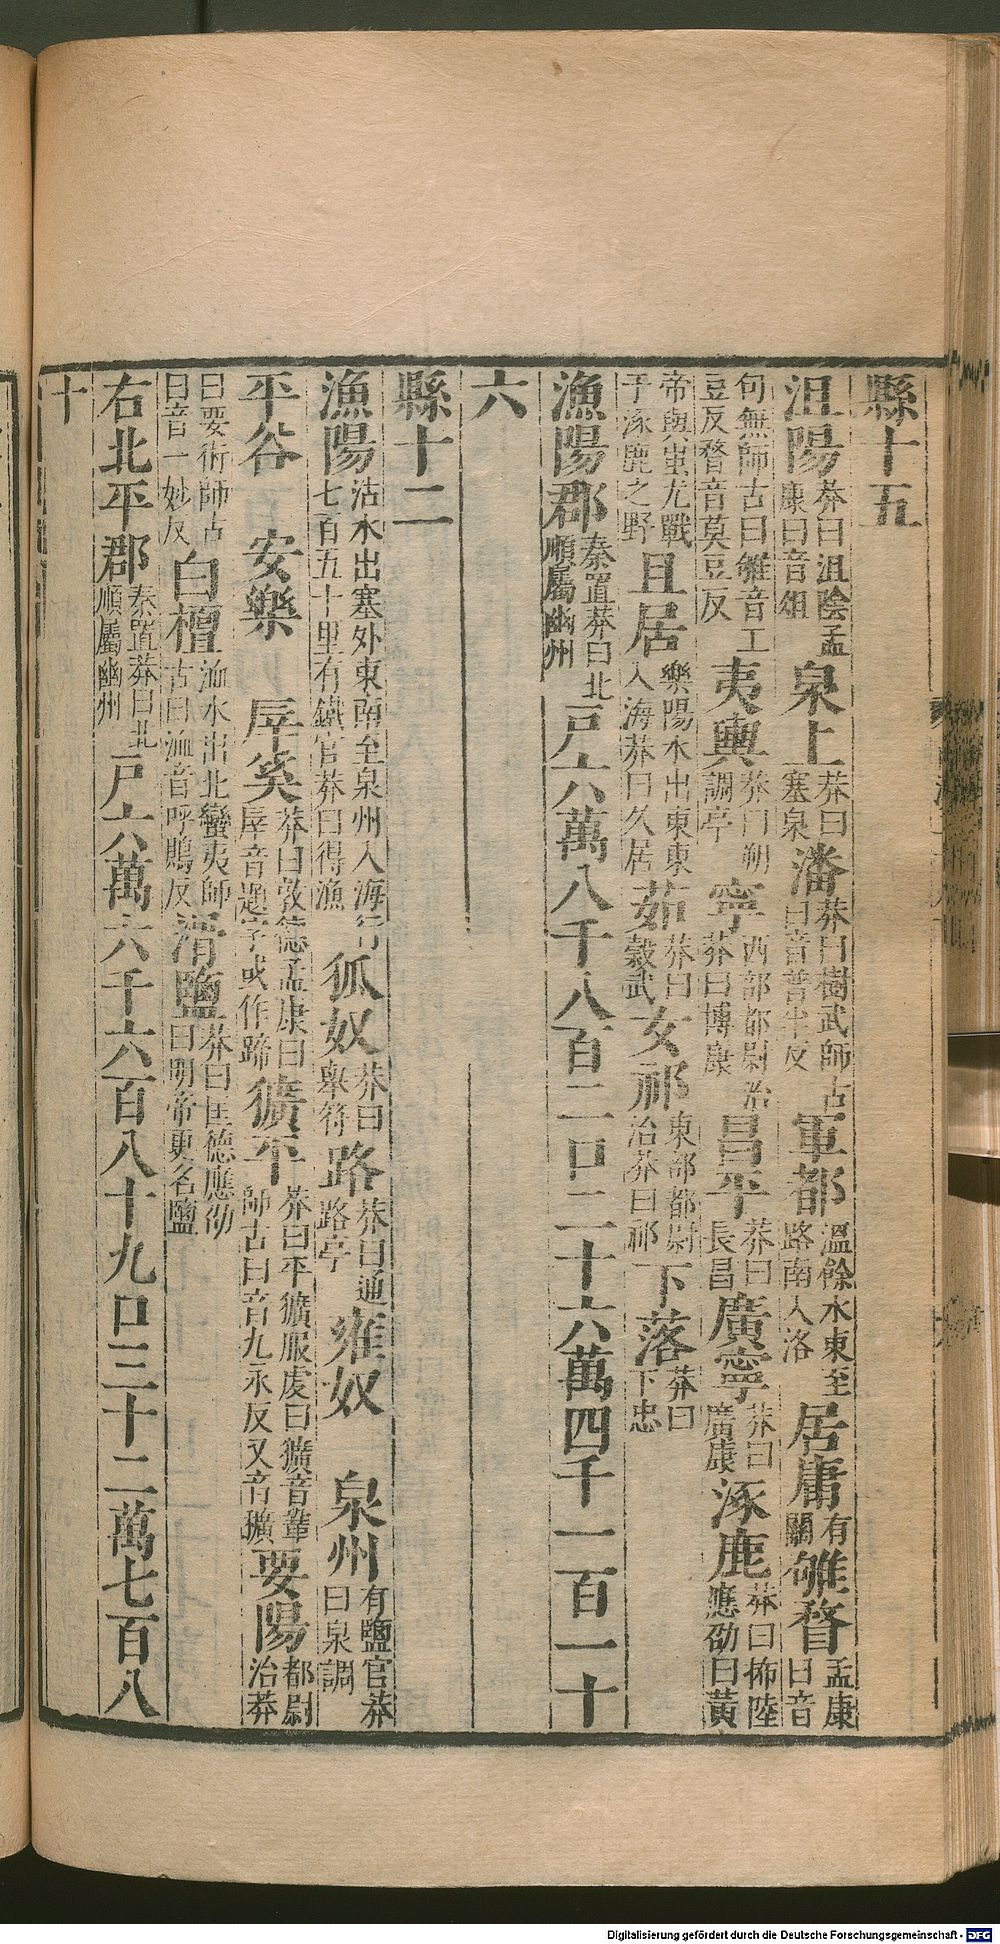 縣十五
沮陽莽曰沮陰孟康曰音俎泉上莽曰塞泉潘莽曰樹武師古曰音普半反軍都溫餘水東至路南入洛居庸有關雊瞀孟康曰音
句無師古曰雊音工豆反瞀音莫豆反夷輿莽曰朔調亭寧西部都尉治莽曰博康昌平莽曰長昌廣寧莽曰廣康涿鹿莽曰抪陸應劭曰黃
帝與蚩尤戰于涿鹿之野且居樂陽水出東東入海莽曰久居茹莽曰穀武女祁東部都尉治莽曰祁下落莽曰下忠
漁陽郡秦置莽曰北順屬幽州戶六萬八千八百二口二十六萬四千一百一十
六
縣十二
漁陽沽水出塞外東南至泉州入海行七百五十里有鐵官莽曰得漁狐奴莽曰舉符路莽曰通路亭雍奴泉州有鹽官莽曰泉調
平谷安樂厗奚莽曰敦德孟康曰厗音題字或作蹄獷平莽曰平獷服虔曰獷音鞏師古曰音九永反又音礦要陽都尉治莽
曰要術師古曰音一妙反白檀洫水出北蠻夷師古曰洫音呼鵙反滑鹽莽曰匡德應劭曰明帝更名鹽
右北平郡秦置莽曰北順屬幽州戶六萬六千六百八十九口三十二萬七百八
十
Digitalisierung gefördert durch die Deutsche Forschungsgemeinschaft - DFG